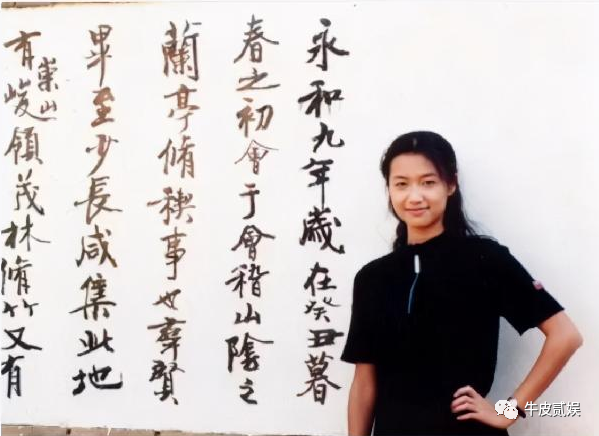 永和九年歲在癸丑暮
春之初會于會稽山陰之
蘭亭脩稧事也羣賢
畢至少長咸集此地
有崇山峻領茂林脩竹又有
牛皮贰娱